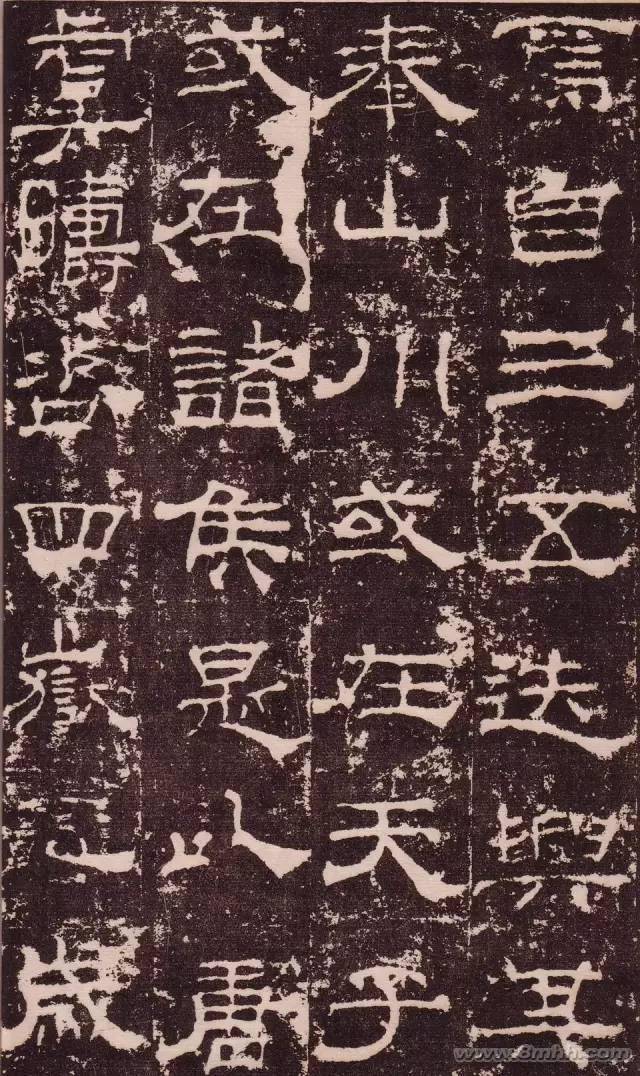 焉自三五迭興其
奉山川或在天子
或在諸侯是以唐
虞疇咨四嶽五歲
www.8mhh.com